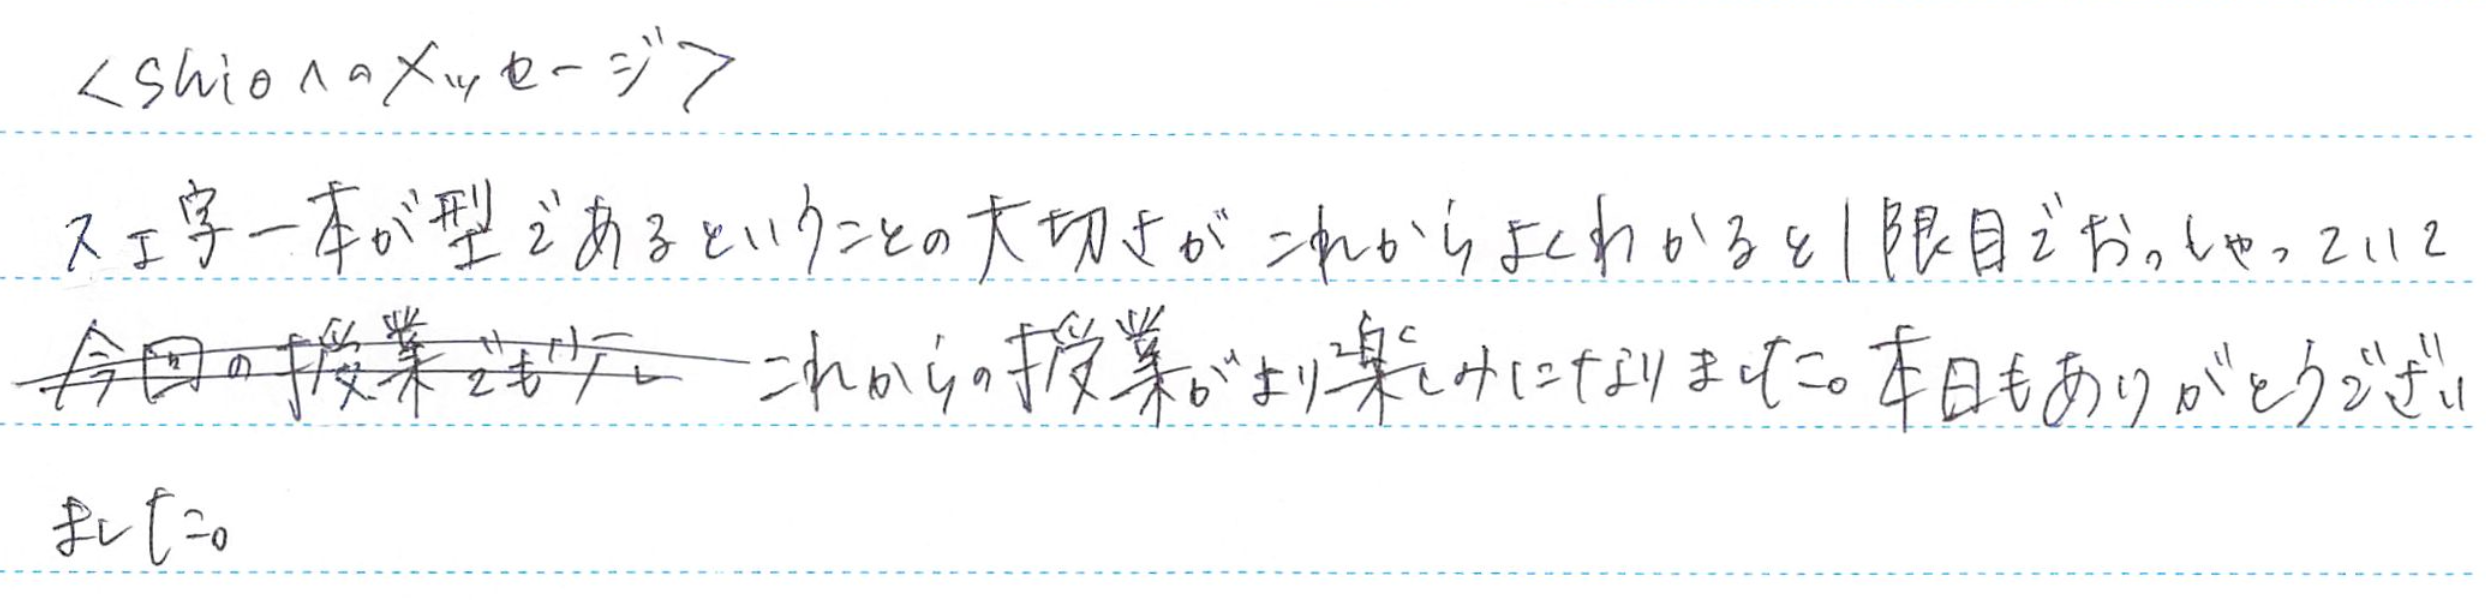 <shioへのメッセージ>
ス工字一本が型であるということの大切さがこれからよくわかると1限目でおっしゃっていて
今回の授業でも これからの授業がより楽しみになりました。本日もありがとうございい
ました。